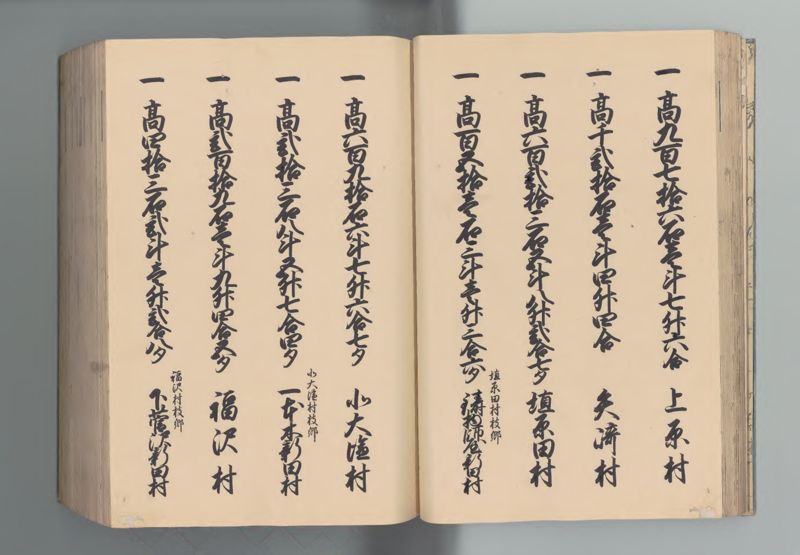 一 高九百七拾六石壱斗七升六合 上原村
一 高千弐拾石壱斗四升四合 矢ヶ崎村
一 高六百弐拾三石五斗八升弐合七夕 埴原田村
埴原田村枝郷
一 高百五拾壱石三斗壱升三合六夕 新田村
一 高六百九拾石六斗七升六合七夕 北大塩村
北大塩村枝郷
一 高弐拾三石八斗五升七合四夕 一本木新田村
一 高弐百拾九石壱斗九升四合五夕 福沢村
福沢村枝郷
一 高四拾三石弐斗壱升弐合八夕 下菅沢新田村